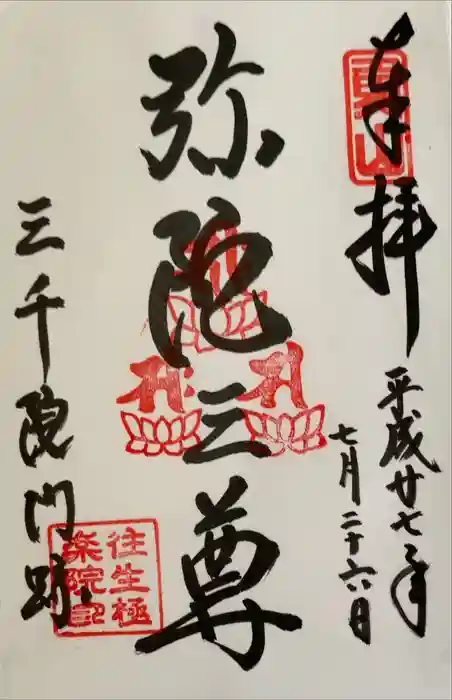 奉拝
平成廿七年
七月二十六日
弥陀三尊
三千院門跡
往生極
楽院印